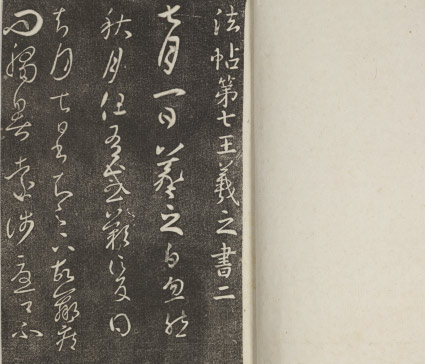 法帖第七王羲之書二
七月一日羲之白忽然
秋月但有感歎信反得
去月七日書知足下故羸疾
問觸暑遠涉憂卿不